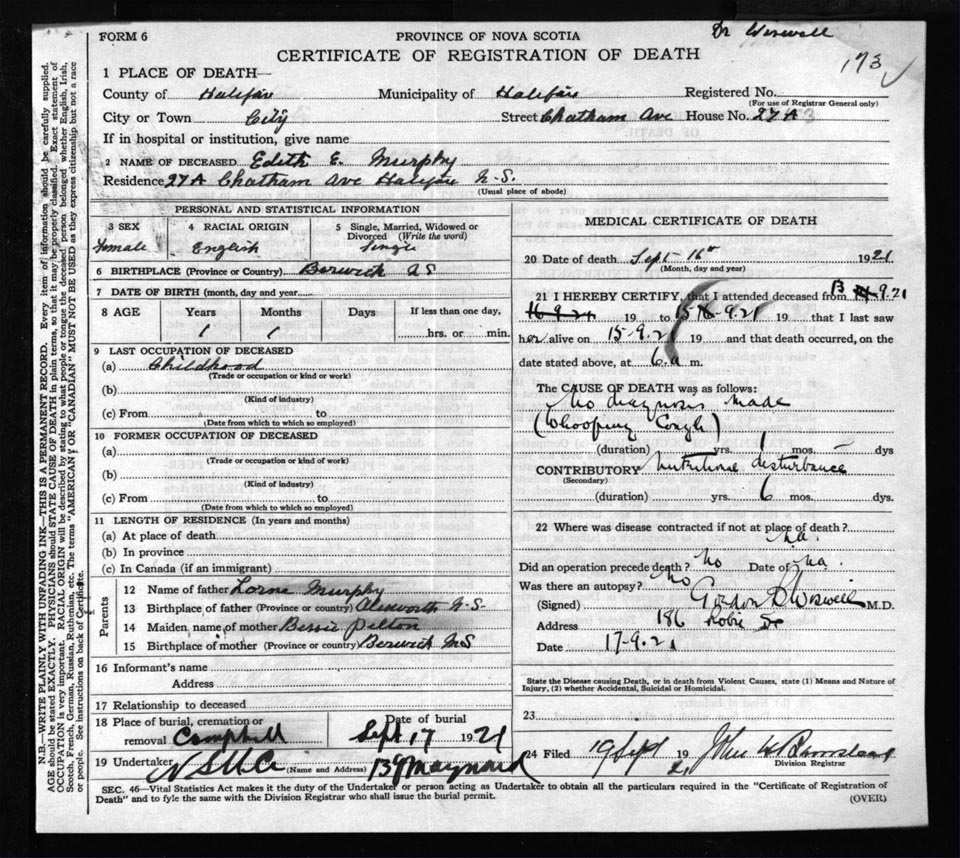 Dr Wiswell
173
FORM 6
PROVINCE OF NOVA SCOTIA
CERTIFICATE OF REGISTRATION OF DEATH
1 PLACE OF DEATH—
County of Halifax Municipality of Halifax Registered No.
(For use of Registrar General only)
City or Town City Street Chatham Ave House No. 27A
If in hospital or institution, give name
2 NAME OF DECEASED Edith E. Murphy
Residence 27A Chatham Ave Halifax N.S.
(Usual place of abode)
PERSONAL AND STATISTICAL INFORMATION
3 SEX 4 RACIAL ORIGIN 5 Single, Married, Widowed or
Divorced (Write the word)
Female English Single
6 BIRTHPLACE (Province or Country) Berwick NS
7 DATE OF BIRTH (month, day and year)
8 AGE Years Months Days If less than one day,
1 1 hrs. or min.
9 LAST OCCUPATION OF DECEASED
(a) Childhood
(Trade or occupation or kind or work)
(b)
(Kind of industry)
(c) From to
(Date from which to which so employed)
10 FORMER OCCUPATION OF DECEASED
(a)
(Trade or occupation or kind of work)
(b)
(Kind of industry)
(c) From to
(Date from which to which so employed)
11 LENGTH OF RESIDENCE (In years and months)
(a) At place of death
(b) In province
(c) In Canada (if an immigrant)
Parents
12 Name of father Lorne Murphy
13 Birthplace of father (Province or country) N.S.
14 Maiden name of mother Bessie
15 Birthplace of mother (Province or country) Berwick NS
16 Informant's name
Address
17 Relationship to deceased
18 Place of burial, cremation or Date of burial
removal Camphill Sept 17 1921
19 Undertaker N S U Co (Name and Address) Maynard
MEDICAL CERTIFICATE OF DEATH
20 Date of death Sept 16th 1921
(Month, day and year)
21 I HEREBY CERTIFY, that I attended deceased from 13 9.21
16-9-21 19 to 15-9-21 19 that I last saw
her alive on 15-9.21 19 and that death occurred, on the
date stated above, at 6 a m.
The CAUSE OF DEATH was as follows:
No diagnosis made
(Whooping Cough)
(duration) yrs. 1 mos. – dys
CONTRIBUTORY Nutritional disturbance
(Secondary)
(duration) yrs. 6 mos. dys.
22 Where was disease contracted if not at place of death?
na.
Did an operation precede death? No Date of na.
Was there an autopsy? No
(Signed) Gordon B Wiswell M.D.
Address 186 Robie St
Date 17-9.21
State the Disease causing Death, or in death from Violent Causes, state (1) Means and Nature of
Injury, (2) whether Accidental, Suicidal or Homicidal.
23
24 Filed 19 Sept 1921 John W
Division Registrar
SEC. 46—Vital Statistics Act makes it the duty of the Undertaker or person acting as Undertaker to obtain all the particulars required in the "Certificate of Registration of
Death" and to fyle the same with the Division Registrar who shall issue the burial permit.
(OVER)
N.B.—WRITE PLAINLY WITH UNFADING INK—THIS IS A PERMANENT RECORD. Every item of information should be carefully supplied.
AGE should be stated EXACTLY. PHYSICIANS should STATE CAUSE OF DEATH in plain terms, so that it may be properly classified. Exact statement of
OCCUPATION is very important. RACIAL ORIGIN will be described by stating to what people or tongue the deceased person belonged whether English, Irish,
Scotch, French, German, Russian, Ruthenian, etc. The terms "AMERICAN" OR "CANADIAN" MUST NOT BE USED as they express citizenship but not a race
or people. See instructions on back of Certificate.